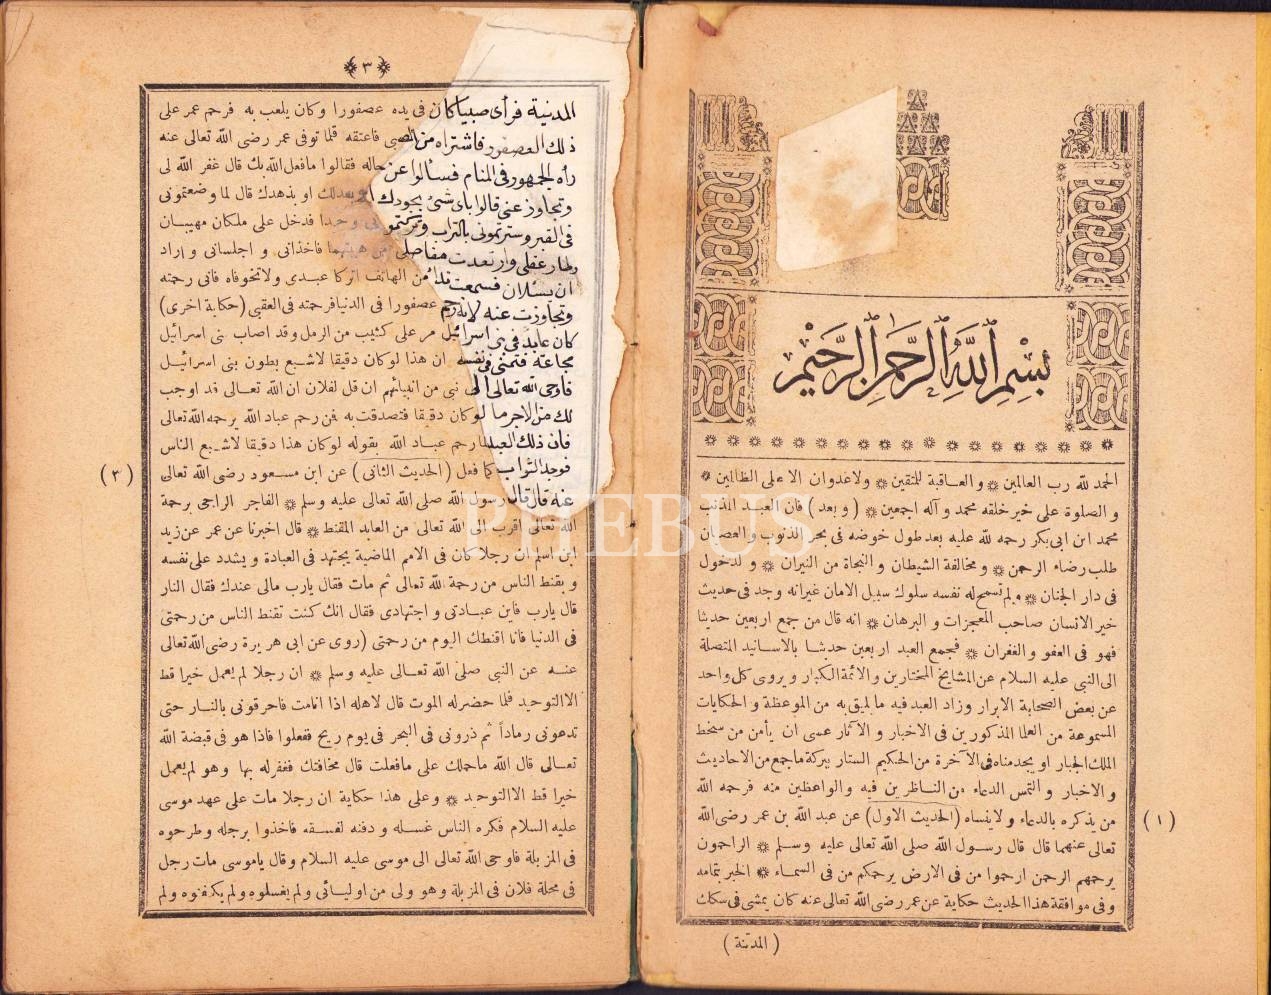 بسم الله الرحمن الرحيم
الحمد لله رب العالمين والعاقبة للمتقين ولاعدوان الا على الظالمين
والصلوة على خير خلقه محمد وآله اجمعين (وبعد) فان العبد المذنب
محمد ابن ابى بكر رحمه لله عليه بعد طول خوضه فى بحر الذنوب والعصيان
طلب رضاء الرحمن ومخالفة الشيطان والنجاة من النيران ولدخول
فى دار الجنان ولم تسمح له نفسه سلوك سبيل الامان غيرانه وجد فى حديث
خير الانسان صاحب المعجزات والبرهان انه قال من جمع اربعين حديثا
فهو فى العفو والغفران فجمع العبد اربعين حديثا بالاسانيد المتصلة
الى النبى عليه السلام عن المشايخ المختارين والائمة الكبار ويروى كل واحد
عن بعض الصحابة الابرار وزاد العبد فيه ما يليق به من الموعظة والحكايات
المسموعة من العلما المذكورين فى الاخبار والآثار عسى ان يأمن من سخط
الملك الجبار او يجد مناه فى الآخرة من الحكيم الستار ببركة ماجمع من الاحاديث
والاخبار والتمس الدعاء من الناظرين فيه والواعظين منه فرحمه الله
من يذكره بالدعاء ولاينساه (الحديث الاول) عن عبد الله بن عمر رضى الله
(١)
تعالى عنهما قال قال رسول الله صلى الله تعالى عليه وسلم الراحمون
يرحمهم الرحمن ارحموا من فى الارض يرحمكم من فى السماء الخبر بتمامه
وفى موافقة هذا الحديث حكاية عن عمر رضى الله تعالى عنه كان يمشى فى سكك
(المدينة)
٣
المدنية فرأى صبيا كان فى يده عصفورا وكان يلعب به فرحم عمر على
ذلك العصفور فاشتراه من الصبى فاعتقه فلما توفى عمر رضى الله تعالى عنه
رأه الجمهور فى المنام فسألوا عن حاله فقالوا مافعل الله بك قال غفر الله لى
وتجاوز عنى قالوا باى شئ بجودك او بعدلك او بزهدك قال لما وضعتمونى
فى القبر وسترتمونى بالتراب وتركتمونى وحيدا فدخل على ملكان مهيبان
وطار عقلى وارتعدت مفاصلى من هيبتهما فاخذانى واجلسانى واراد
ان يسئلان فسمعت نداء من الهاتف اتركا عبدى ولاتخوفاه فانى رحمته
وتجاوزت عنه لانه رحم عصفورا فى الدنيا فرحمته فى العقبى (حكاية اخرى)
كان عابد فى بنى اسرائيل مر على كثيب من الرمل وقد اصاب بنى اسرائيل
مجاعة فتمنى فى نفسه ان هذا لوكان دقيقا لاشبع بطون بنى اسرائيل
فاوحى الله تعالى الى نبى من انبيائهم ان قل لفلان ان الله تعالى قد اوجب
لك من الاجر ما لوكان دقيقا فتصدقت به فمن رحم عباد الله يرحمه الله تعالى
فان ذلك العبد لما رحم عباد الله بقوله لوكان هذا دقيقا لاشبع الناس
فوجد الثواب كما فعل (الحديث الثانى) عن ابن مسعود رضى الله تعالى
(٣)
عنه قال قال رسول الله صلى الله تعالى عليه وسلم الفاجر الراجى برحمة
الله تعالى اقرب الى الله تعالى من العابد المقنط قال اخبرنا عن عمر عن زيد
ابن اسلم ان رجلا كان فى الامم الماضية يجتهد فى العبادة ويشدد على نفسه
ويقنط الناس من رحمة الله تعالى ثم مات فقال يارب مالى عندك فقال النار
قال يارب فاين عبادتى واجتهادى فقال انك كنت تقنط الناس من رحمتى
فى الدنيا فانا اقنطك اليوم من رحمتى (روى عن ابى هريرة رضى الله تعالى
عنه عن النبى صلى الله تعالى عليه وسلم ان رجلا لم يعمل خيرا قط
الا التوحيد فلما حضرله الموت قال لاهله اذا انامت فاحرقونى بالنار حتى
تدعونى رماداً ثم ذرونى فى البحر فى يوم ريح ففعلوا فاذا هو فى قبضة الله
تعالى قال الله ماحملك على مافعلت قال مخافتك فغفرله بها وهو لم يعمل
خيرا قط الا التوحيد وعلى هذا حكاية ان رجلا مات على عهد موسى
عليه السلام فكره الناس غسله ودفنه لفسقه فاخذوا برجله وطرحوه
فى المزبلة فاوحى الله تعالى الى موسى عليه السلام وقال ياموسى مات رجل
فى محلة فلان فى المزبلة وهو ولى من اوليائى ولم يغسلوه ولم يكفنوه ولم
PHEBUS